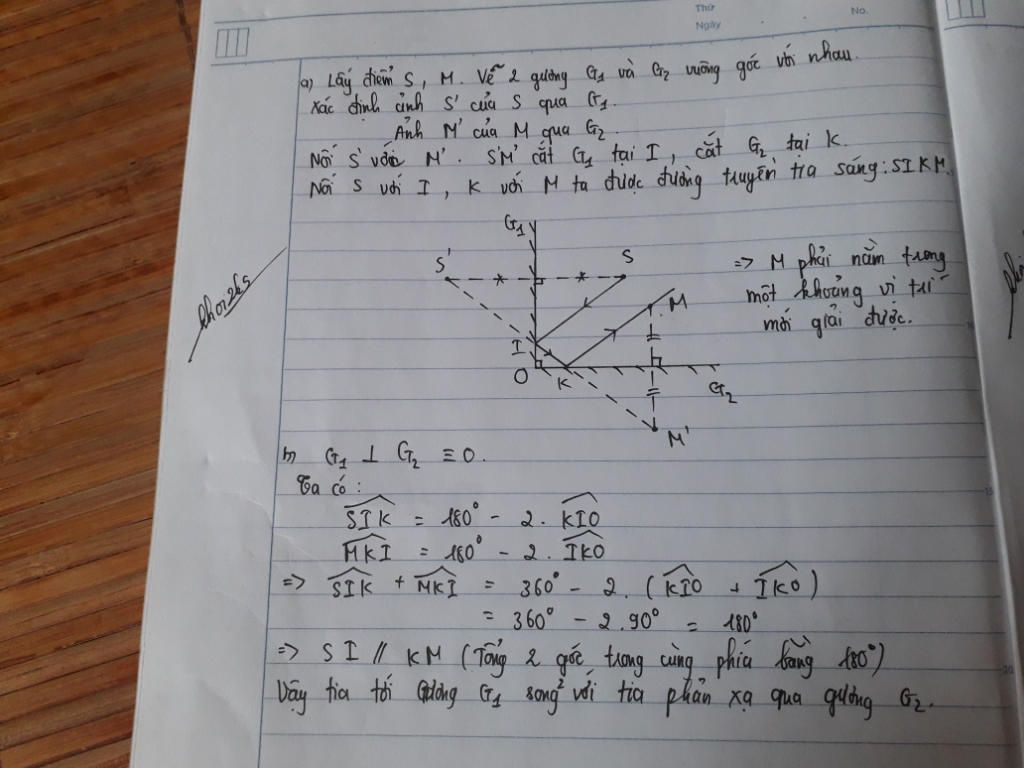 Thứ
Ngày
No.
a) Lấy điểm S, M. Vẽ 2 gương G1 và G2 vuông góc với nhau.
Xác định ảnh S' của S qua G1.
Ảnh M' của M qua G2.
Nối S' với M'. S'M' cắt G1 tại I, cắt G2 tại K.
Nối S với I, K với M ta được đường truyền tia sáng: SIKM.
G1
S'
S
M
I
O
K
G2
M'
=> M phải nằm trong
một khoảng vị trí
mới giải được.
khoi2k5
b) G1 ⊥ G2 ≡ O.
Ta có:
SIK = 180° - 2. KIO
MKI = 180° - 2. IKO
=> SIK + MKI = 360° - 2. (KIO + IKO)
= 360° - 2.90° = 180°
=> SI // KM (Tổng 2 góc trong cùng phía bằng 180°)
Vậy tia tới Gương G1 song² với tia phản xạ qua gương G2.